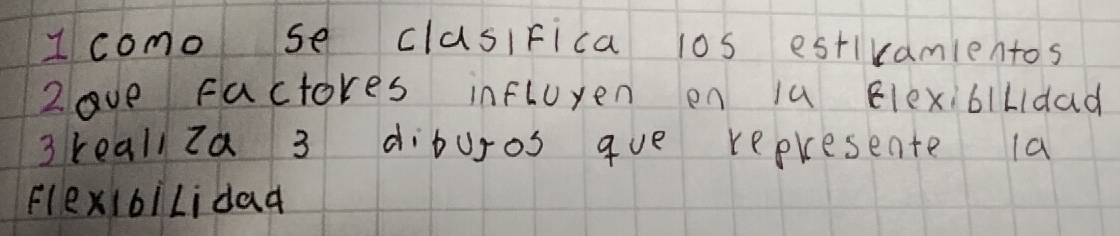 1 como se clasifica los estiramientos
2 que factores influyen en la flexibilidad
3 realiza 3 dibujos que represente la
flexibilidad